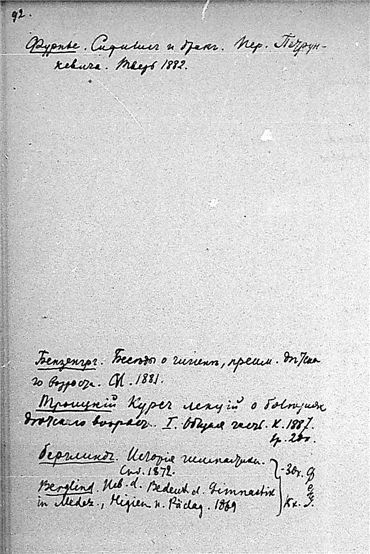 92.
Фурнье. Сифилис и бракъ. Пер. Петрун-
кевича. Тверь 1882.
Бензенгръ. Беседы о гигiенѣ, преим. дѣтска
го возраста. 1881.
Троицкiй Курсъ лекцiй о болѣзняхъ
дѣтскаго возраста. I. Общая часть. Х. 1887.
Берглиндъ. Исторiя гимнастики.
Спб. 1872.
Berglind. Ueb. d. Bedeut. d. Gimnastik
in Medez., Higien u. Pädag. 1869